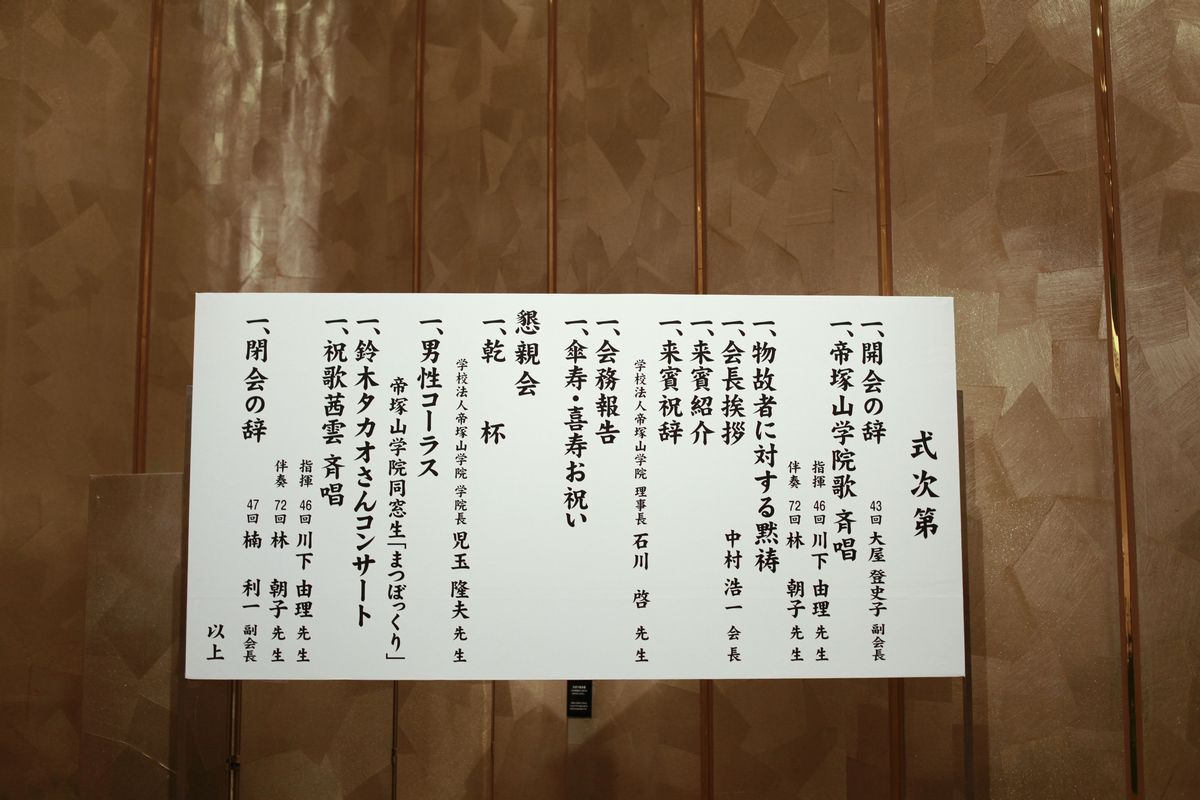 式次第
一、開会の辞 43回 大屋 登史子 副会長
一、帝塚山学院歌 斉唱
指揮 46回 川下 由理 先生
伴奏 72回 林 朝子 先生
一、物故者に対する黙祷
一、会長挨拶 中村 浩一 会長
一、来賓紹介
一、来賓祝辞
学校法人帝塚山学院 理事長 石川 啓 先生
一、会務報告
一、傘寿・喜寿お祝い
懇親会
一、乾 杯
学校法人帝塚山学院 学院長 児玉 隆夫 先生
一、男性コーラス
帝塚山学院同窓生「まつぼっくり」
一、鈴木タカオさんコンサート
一、祝歌茜雲 斉唱
指揮 46回 川下 由理 先生
伴奏 72回 林 朝子 先生
一、閉会の辞 47回 楠 利一 副会長
以上